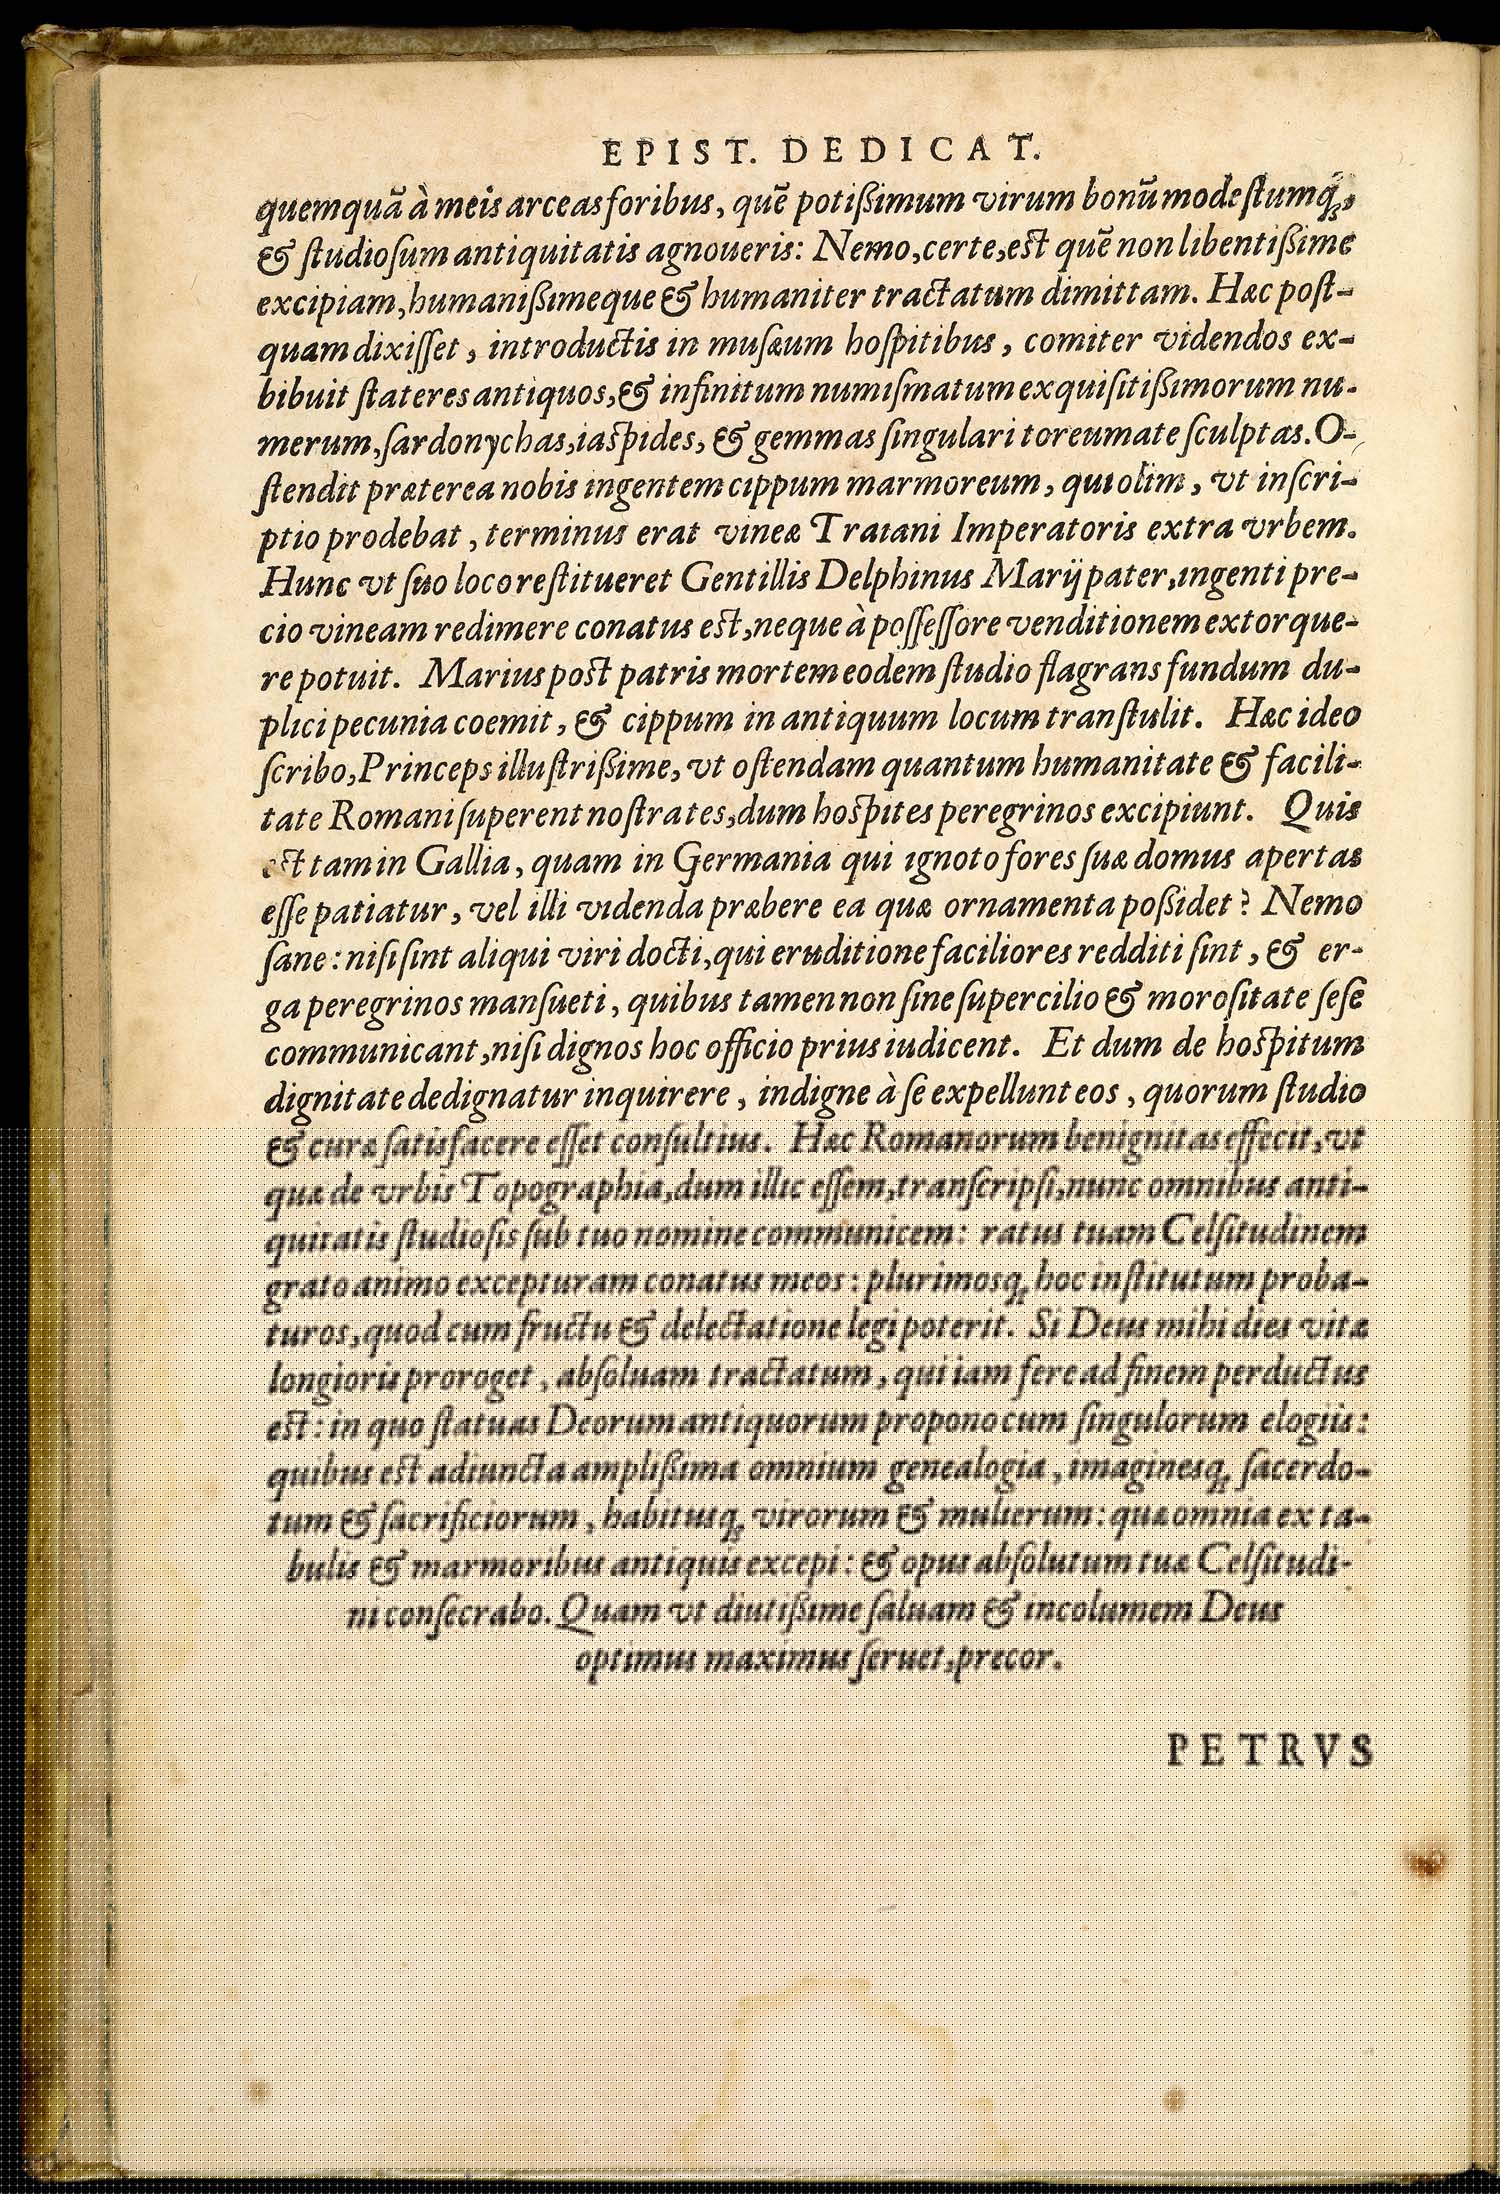 EPIST. DEDICAT.
quemquã à meis arceas foribus, quẽ potißimum virum bonũ modeſtumq́;,
& ſtudioſum antiquitatis agnoueris: Nemo, certe, eſt quẽ non libentißime
excipiam, humanißimeque & humaniter tractatum dimittam. Hæc poſt-
quam dixiſſet, introductis in muſæum hoſpitibus, comiter videndos ex-
bibuit ſtateres antiquos, & infinitum numiſmatum exquiſitißimorum nu-
merum, ſardonychas, iaſpides, & gemmas ſingulari toreumate ſculptas. O-
ſtendit præterea nobis ingentem cippum marmoreum, qui olim, vt inſcri-
ptio prodebat, terminus erat vineæ Traiani Imperatoris extra vrbem.
Hunc vt ſuo loco reſtitueret Gentillis Delphinus Marij pater, ingenti pre-
cio vineam redimere conatus eſt, neque à poſſeſſore venditionem extorque-
re potuit. Marius poſt patris mortem eodem ſtudio flagrans fundum du-
plici pecunia coemit, & cippum in antiquum locum tranſtulit. Hæc ideo
ſcribo, Princeps illuſtrißime, vt oſtendam quantum humanitate & facili-
tate Romani ſuperent noſtrates, dum hoſpites peregrinos excipiunt. Quis
eſt tam in Gallia, quam in Germania qui ignoto fores ſuæ domus apertas
eſſe patiatur, vel illi videnda præbere ea quæ ornamenta poßidet? Nemo
ſane: niſi ſint aliqui viri docti, qui eruditione faciliores redditi ſint, & er-
ga peregrinos manſueti, quibus tamen non ſine ſupercilio & moroſitate ſeſe
communicant, niſi dignos hoc officio prius iudicent. Et dum de hoſpitum
dignitate dedignatur inquirere, indigne à ſe expellunt eos, quorum ſtudio
& curæ ſatisfacere eſſet conſultius. Hæc Romanorum benignitas effecit, vt
quæ de vrbis Topographia, dum illic eſſem, tranſcripſi, nunc omnibus anti-
quitatis ſtudioſis ſub tuo nomine communicem: ratus tuam Celſitudinem
grato animo excepturam conatus meos: plurimosq; hoc inſtitutum proba-
turos, quod cum fructu & delectatione legi poterit. Si Deus mihi dies vitæ
longioris proroget, abſoluam tractatum, qui iam fere ad finem perductus
eſt: in quo ſtatuas Deorum antiquorum propono cum ſingulorum elogiis:
quibus eſt adiuncta amplißima omnium genealogia, imaginesq; ſacerdo-
tum & ſacrificiorum, habitusq; virorum & mulierum: quæ omnia ex ta-
bulis & marmoribus antiquis excepi: & opus abſolutum tuæ Celſitudi-
ni conſecrabo. Quam vt diutißime ſaluam & incolumem Deus
optimus maximus ſeruet, precor.
PETRVS